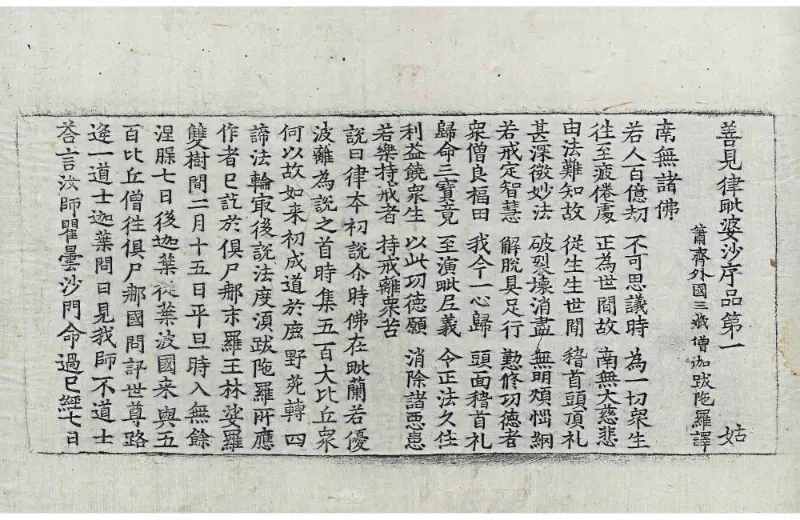 善見律毗婆沙序品第一 姑
蕭齊外國三藏僧伽跋陁羅譯
南無諸佛
若人百億劫 不可思議時 為一切衆生
往至疲倦處 正為世間故 南無大慈悲
由法難知故 從生生世間 稽首頭頂礼
甚深微妙法 破裂壞消盡 無明煩惱網
若戒定智慧 解脫具足行 懃修功德者
衆僧良福田 我今一心歸 頭面稽首礼
歸命三寶竟 至演毗尼義 令正法久住
利益饒衆生 以此功德願 消除諸惡患
若樂持戒者 持戒離衆苦
說曰律本初說尒時佛在毗蘭若優
波離為說之首時集五百大比丘衆
何以故如来初成道於鹿野菀轉四
諦法輪㝡後說法度湏跋陁羅所應
作者已訖於俱尸那末羅王林娑羅
雙樹間二月十五日平旦時入無餘
涅槃七日後迦葉從葉波國来與五
百比丘僧往俱尸那國問訊世尊路
逢一道士迦葉問曰見我師不道士
荅言汝師瞿曇沙門命過已經七日